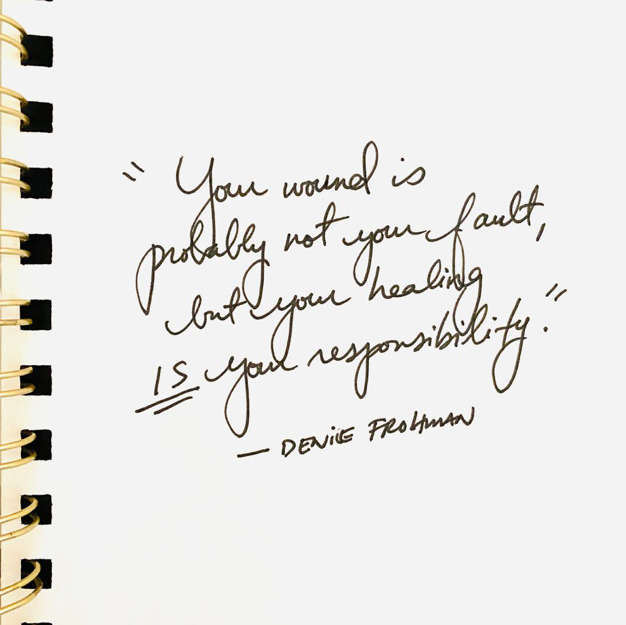 "Your wound is
probably not your fault,
but your healing
IS your responsibility."
— DENICE FROHMAN